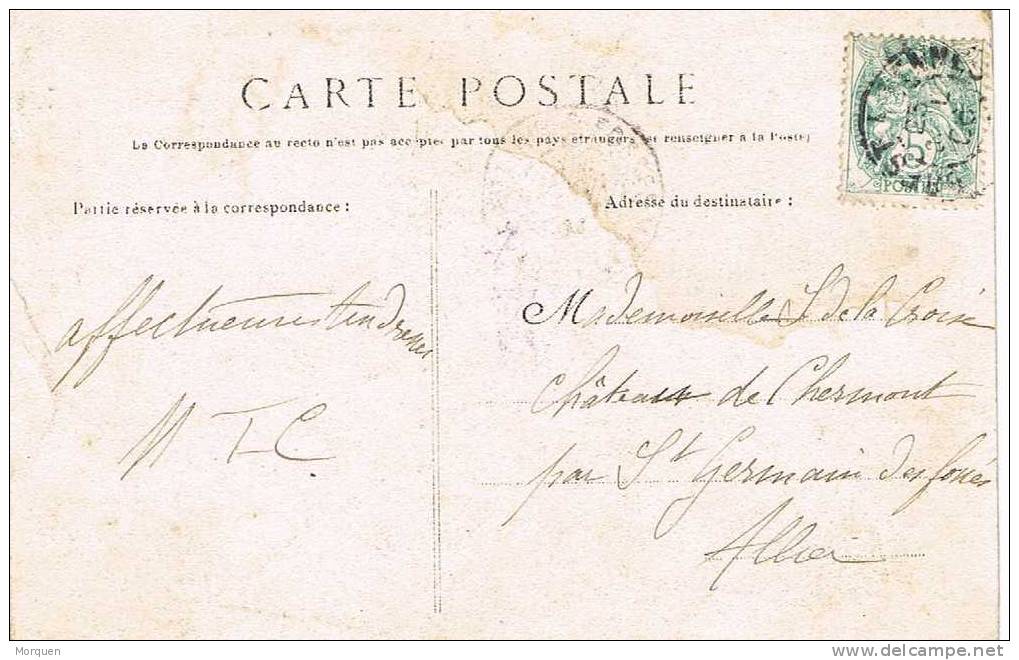 CARTE POSTALE
La Correspondance au recto n'est pas acceptée par tous les pays étrangers (se renseigner à la Poste)
Partie réservée à la correspondance :
Adresse du destinataire :
affectueuses tendresses
M T C
Mademoiselle S de la Croix
Château de Chermont
par St Germain des fossés
Allier
5
POSTES
Morquen
delcampe.net